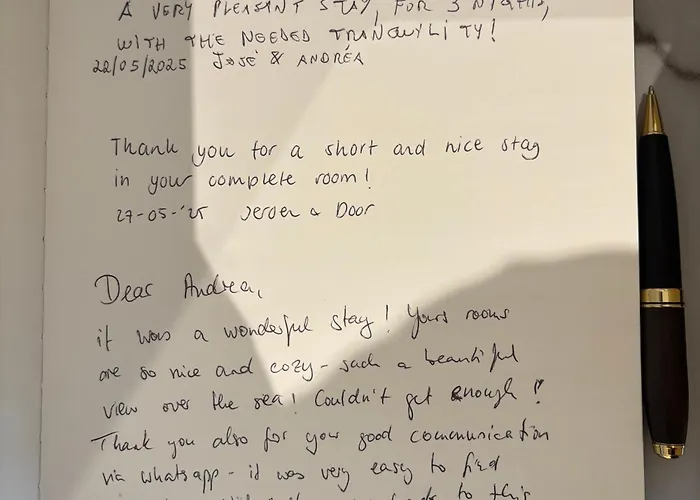 A VERY PLEASANT STAY, FOR 3 NIGHTS,
WITH THE NEEDED TRANQUYLITY!
22/05/2025 JOSÉ & ANDRÉA
Thank you for a short and nice stay
in your complete room!
27-05-'25 Jeroen & Door
Dear Andrea,
it was a wonderful stay! Yours rooms
are so nice and cozy - such a beautiful
view over the sea! Couldn't get enough!
Thank you also for your good communication
via whatsapp - it was very easy to find
to this